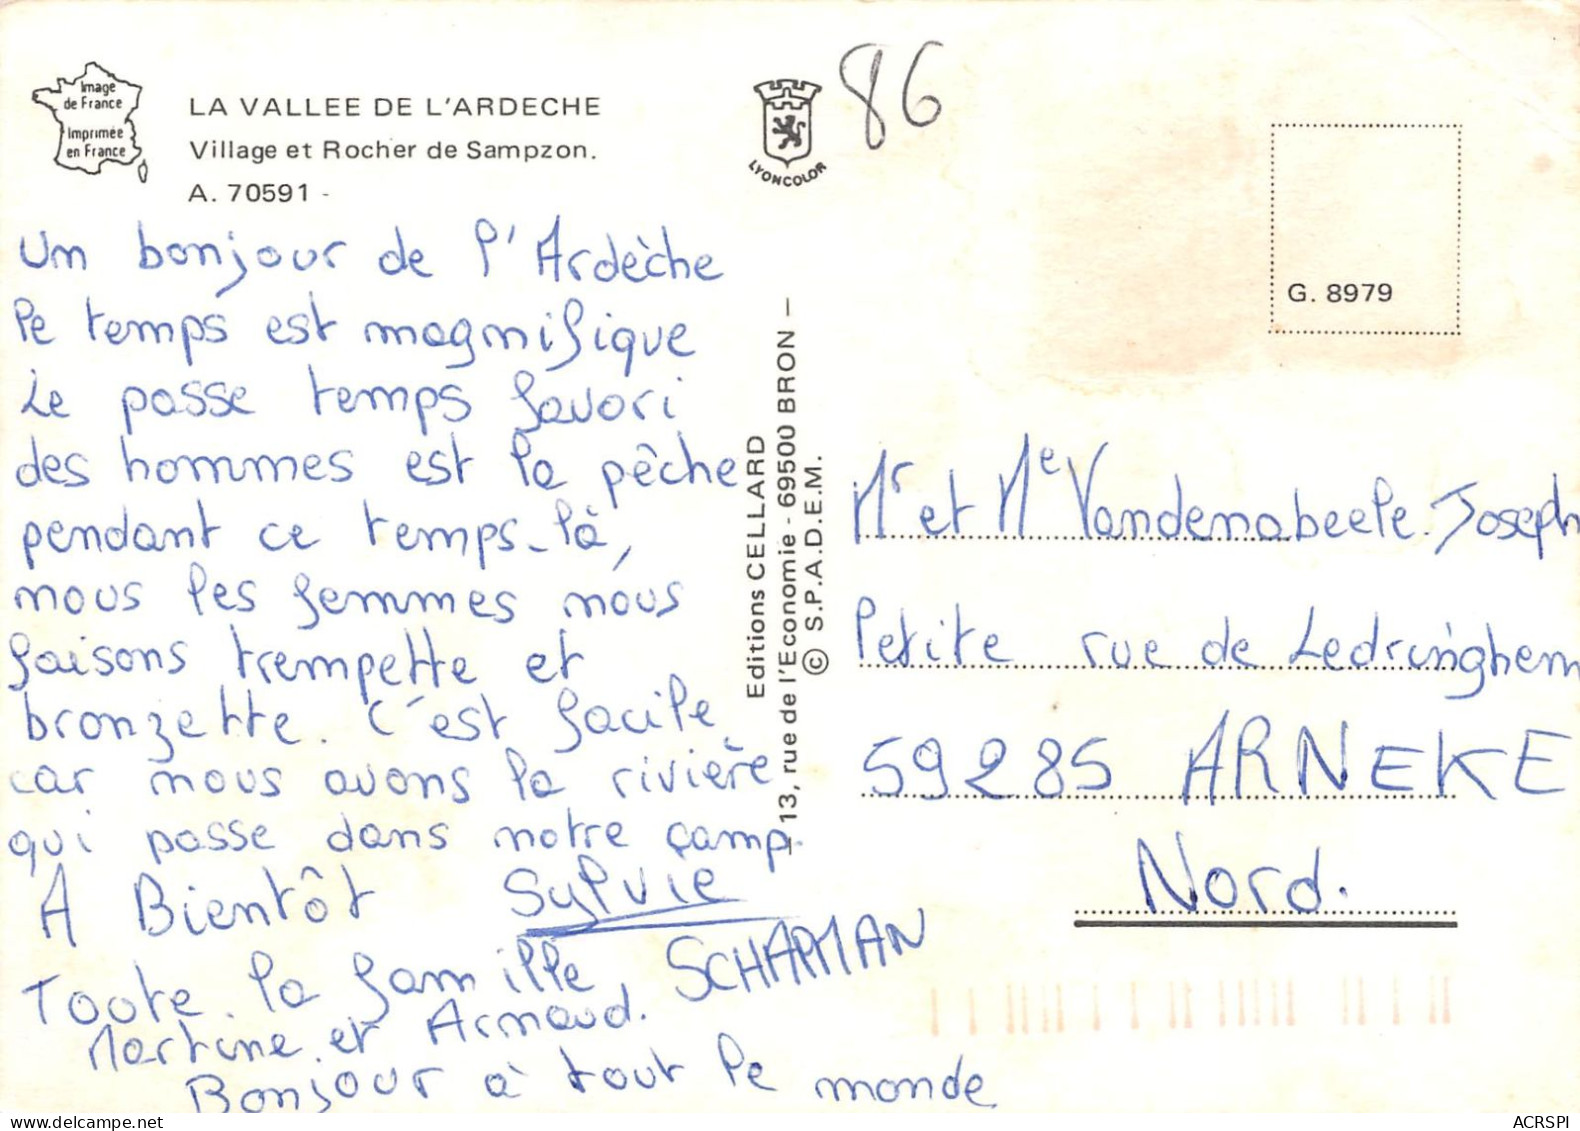 Image
de France
Imprimée
en France
LA VALLEE DE L'ARDECHE
Village et Rocher de Sampzon.
A. 70591 -
LYONCOLOR
86
G. 8979
Un bonjour de l'Ardèche
le temps est magnifique
Le passe temps favori
des hommes est la pêche
pendant ce temps-là,
nous les femmes nous
faisons trempette et
bronzette. C'est facile
car nous avons la rivière
qui passe dans notre camp.
A Bientôt Sylvie
Toute la famille SCHAPMAN
Martine et Arnaud.
Bonjour à tout le monde
Editions CELLARD
— 13, rue de l'Economie - 69500 BRON —
© S.P.A.D.E.M.
Mr et Me Vandenabeele Joseph
Petite rue de Ledringhem
59285 ARNEKE
Nord.
ACRSPI